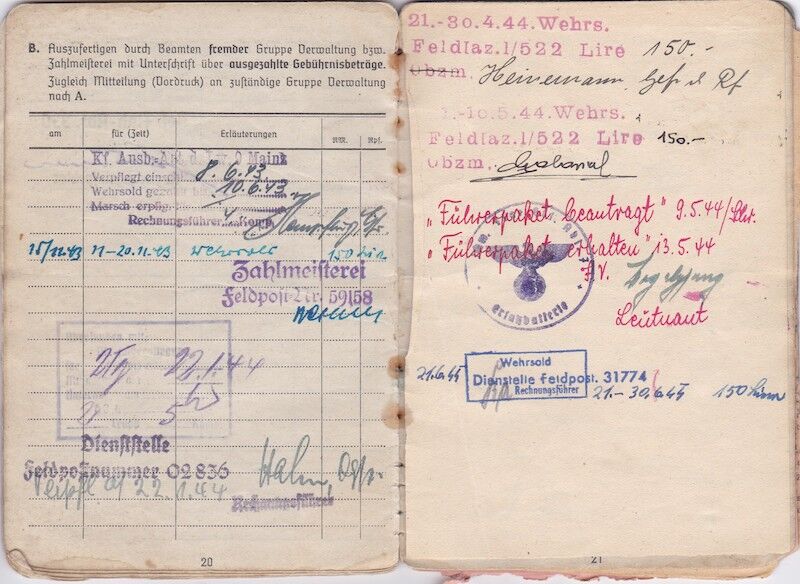 B. Auszufertigen durch Beamten fremder Gruppe Verwaltung bzw.
Zahlmeisterei mit Unterschrift über ausgezahlte Gebührnisbeträge.
Zugleich Mitteilung (Vordruck) an zuständige Gruppe Verwaltung
nach A.
am für (Zeit) Erläuterungen RM. Rpf.
Kf. Ausb.-Abt. d. Lw. 9 Mainz
Verpflegt 8.6.43
Wehrsold 10.6.43
Marsch 4
Rechnungsführer Komp.
15/11.43 11-20.11.43 Wehrsold 150 Lire
Zahlmeisterei
Feldpost-Nr. 59158
22.1.44
Dienststelle
Feldpostnummer 02836
Verpfl. 22.1.44
Hahn,
Rechnungsführer
20
21.-30.4.44.Wehrs.
Feldlaz.1/522 Lire 150.-
Obzm. Heinemann,
1.-10.5.44.Wehrs.
Feldlaz.1/522 Lire 150.-
Obzm.
"Führerpaket beantragt" 9.5.44
"Führerpaket erhalten" 13.5.44
I.V.
Leutnant
Ersatzbatterie
Wehrsold
21.6.44 Dienstelle Feldpost. 31774
Rechnungsführer 21.-30.6.44 150 Lire
21